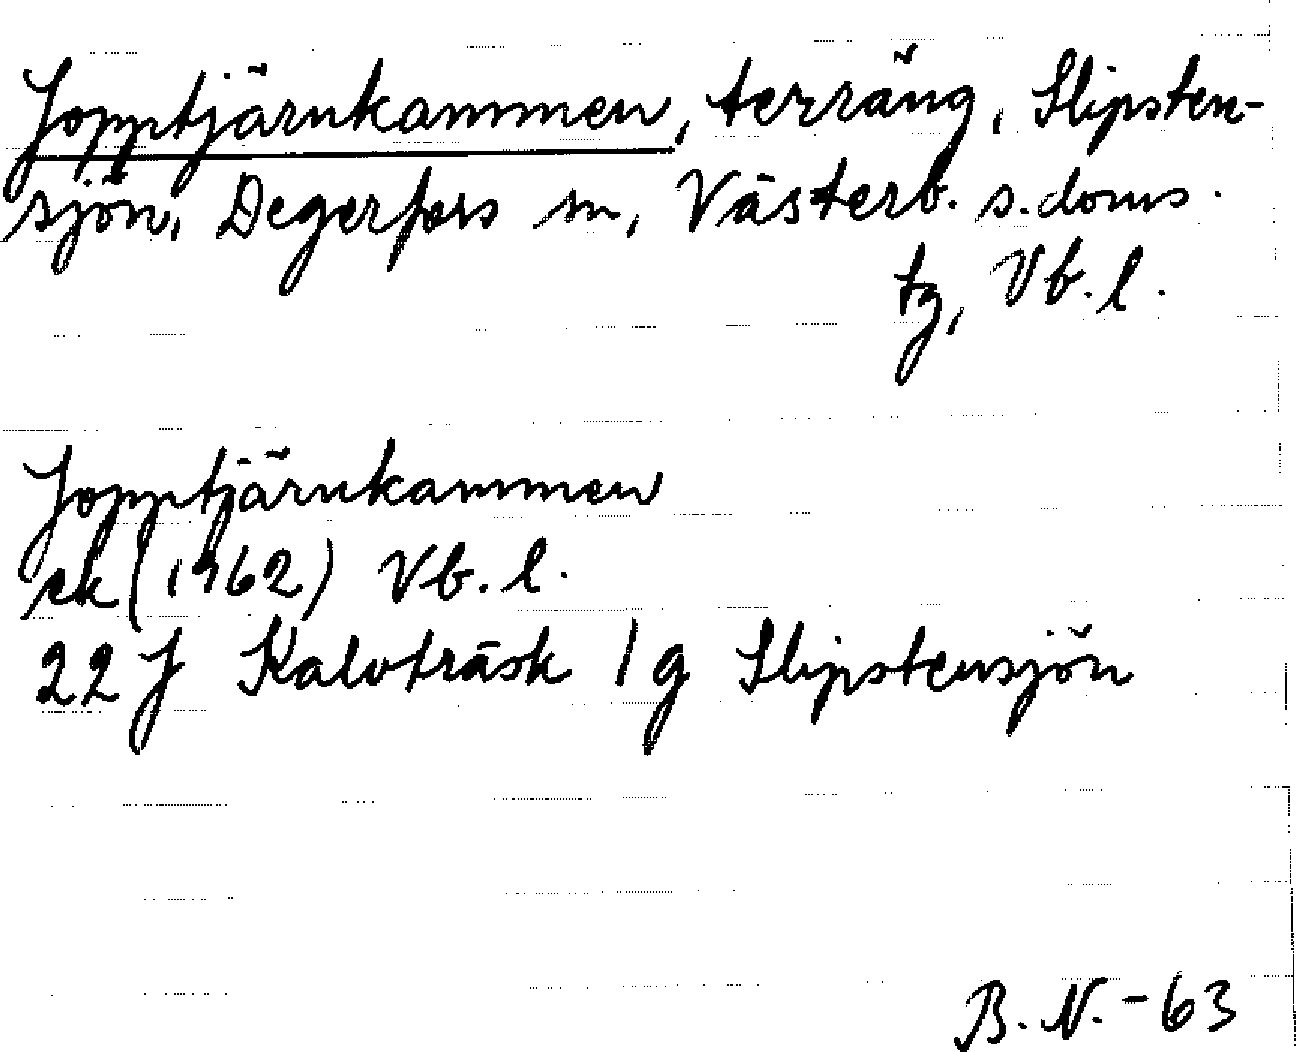 Jopptjärnkammen, terräng, Slipsten-
sjön, Degerfors sn, Västerb. s. doms.
tg, Vb. l.
Jopptjärnkammen
ek (1962) Vb. l.
22 J Kalvträsk 1 g Slipstensjön
B. N. - 63